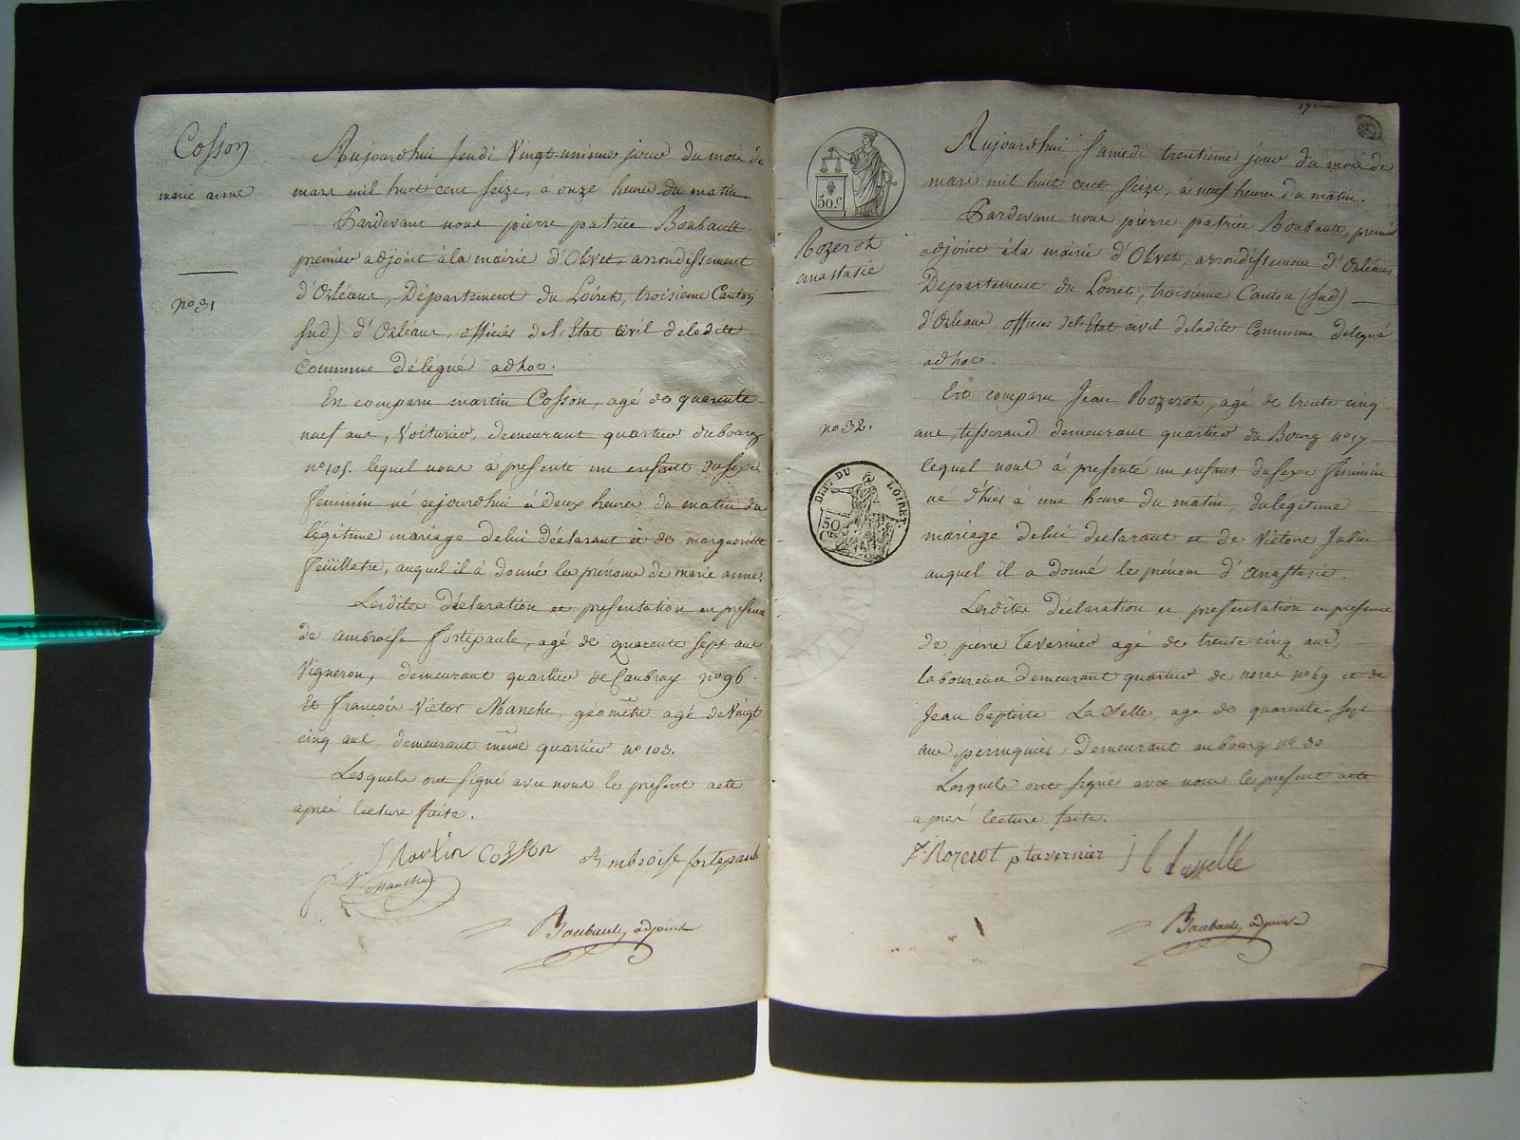 Cosson
marie anne
no 31
Aujourdhui Jeudi Vingt-unieme jour du mois de
mars mil huit cent Seize, a onze heures du matin
Pardevant nous pierre patrice Boubault
premier adjoint à la mairie d'Olivet, arrondissement
d'Orléans, Département du Loiret, troisieme Canton
Sud) d'Orléans, officier de l'Etat Civil de ladite
Commune délégué adhoc.
Est comparu martin Cosson, agé de quarente
neuf ans, Voiturier, demeurant quartier du bourg
no 105. lequel nous à presenté un enfant du sexe
feminin né cejourdhui à deux heures du matin du
légitime mariage de lui déclarant et de marguerite
feuillatre, auquel il à donné les prenoms de marie anne.
Lesdites déclaration et presentation en presence
de ambroise fortepaule, agé de quarente sept ans
Vigneron, demeurant quartier de Caubray no 96.
Et François Victor Manche, géomètre agé de Vingt
cinq ans, demeurant même quartier no 103.
Lesquels ont signé avec nous le present acte
après lecture faite.
Martin Cosson Ambroise fortepaule
Manche
Boubault, adjoint
17
50.c
Rozerot
anastasie
no 32.
DEPt. DU LOIRET.
50
Cs
Aujourdhui Samedi trentieme jour du mois de
mars mil huit cent Seize, à neuf heures du matin.
Pardevant nous pierre patrice Boubault, premier
adjoint à la mairie d'Olivet, arrondissement d'Orléans
Département du Loiret, troisieme Canton (Sud)
d'Orléans, officier de l'Etat civil de ladite Commune délégué
adhoc.
Est comparu Jean Rozerot, agé de trente cinq
ans, tisserand demeurant quartier du Bourg no 17
lequel nous à presenté un enfant du sexe feminin
né d'hier à une heure du matin, du legitime
mariage de lui declarant et de Victoire Jabin
auquel il a donné le prénom d'anastasie.
Lesdites déclaration et presentation en presence
de pierre tavernier agé de trente cinq ans,
laboureur demeurant quartier de no 69 et de
Jean baptiste La Selle, age de quarente-sept
ans, perruquier, demeurant au bourg no 30
Lesquels ont signé avec nous le present acte
après lecture faite.
J. Rozerot p tavernier J B Lasselle
Boubault, adjoint